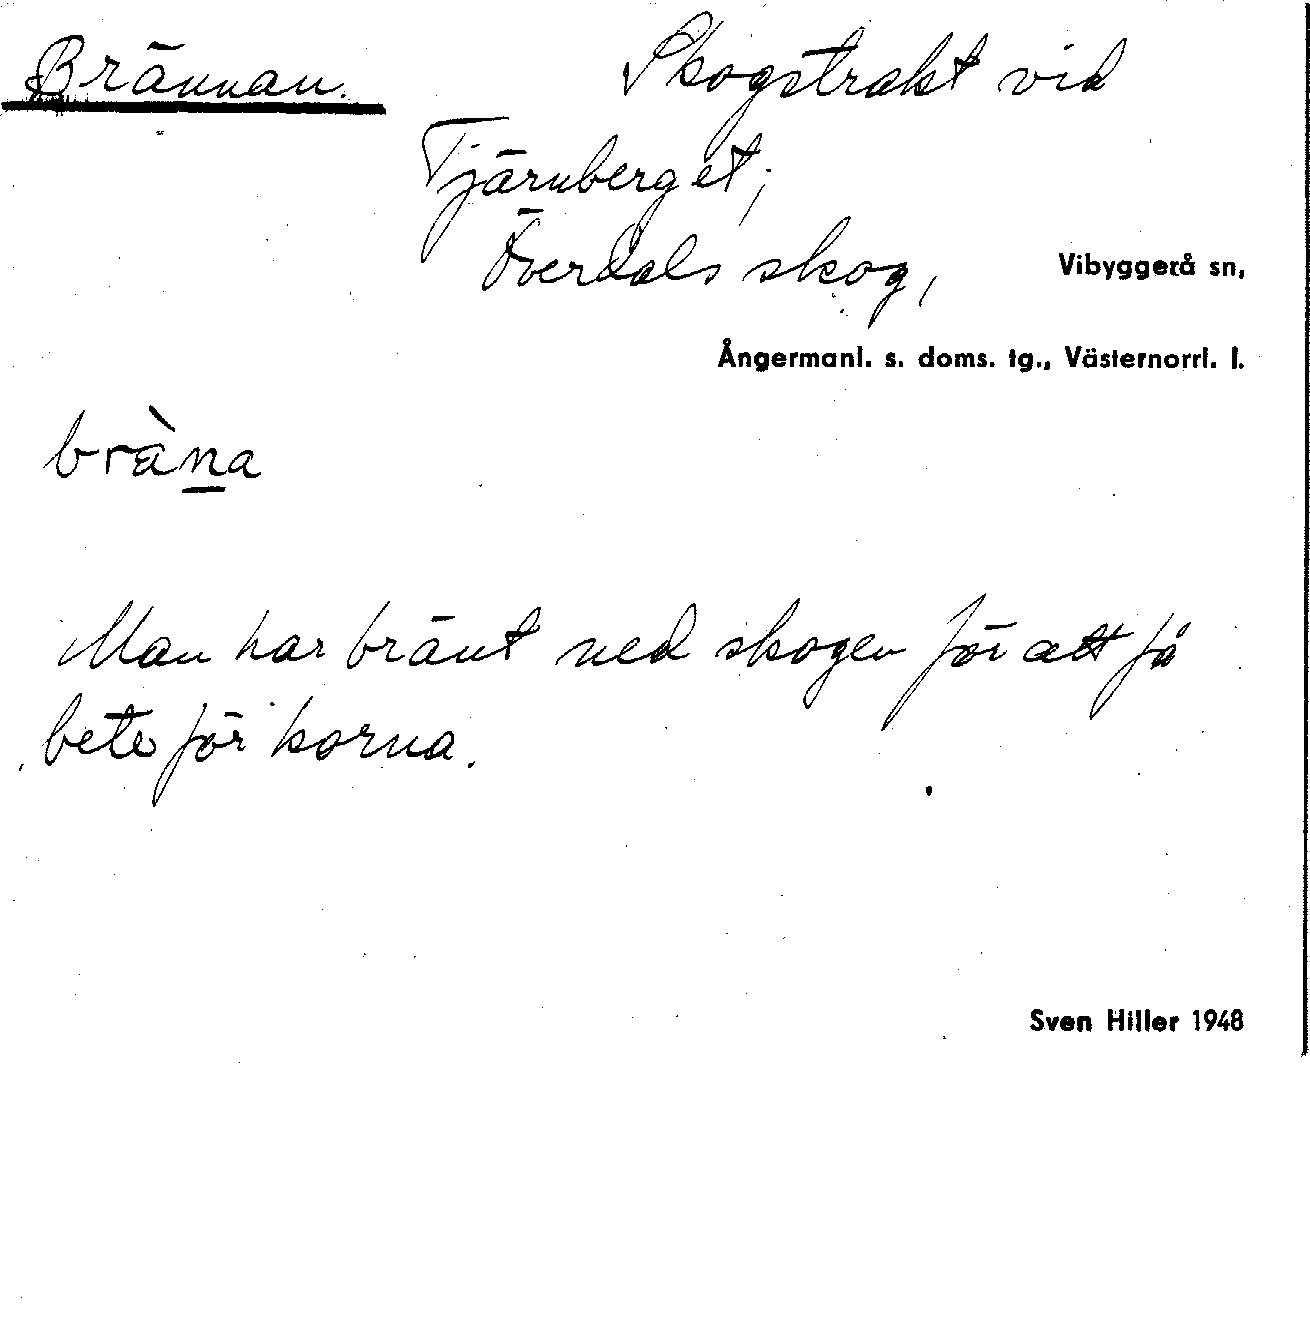 Brännan. Skogstrakt vid
Tjärnberget,
Överdals skog, Vibyggerå sn,
Ångermanl. s. doms. tg., Västernorrl. l.
bràna
Man har bränt ned skogen för att få
bete för korna.
Sven Hiller 1948